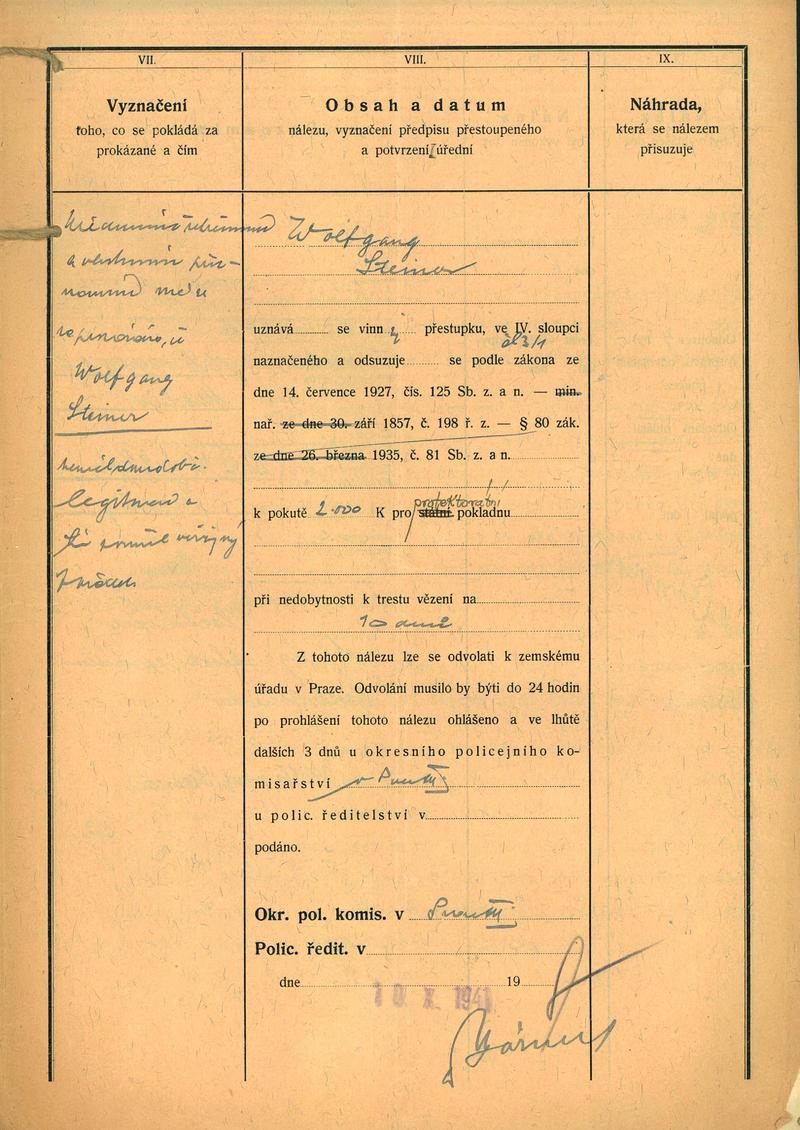 VII.
Vyznačení
toho, co se pokládá za
prokázané a čím
VIII.
Obsah a datum
nálezu, vyznačení předpisu přestoupeného
a potvrzení úřední
IX.
Náhrada,
která se nálezem
přisuzuje
a vlastním
Wolfgang
Steiner
legitimaci a
Wolfgang
Steiner
uznává se vinn přestupku, ve IV. sloupci
čl 3/1
naznačeného a odsuzuje se podle zákona ze
dne 14. července 1927, čís. 125 Sb. z. a n. — min.
nař. ze dne 30. září 1857, č. 198 ř. z. — § 80 zák.
ze dne 26. března 1935, č. 81 Sb. z. a n.
protektorátní
k pokutě 2.000 K pro státní pokladnu
při nedobytnosti k trestu vězení na
10 dnů
Z tohoto nálezu lze se odvolati k zemskému
úřadu v Praze. Odvolání musilo by býti do 24 hodin
po prohlášení tohoto nálezu ohlášeno a ve lhůtě
dalších 3 dnů u okresního policejního ko-
misařství v Praze III
u polic. ředitelství v
podáno.
Okr. pol. komis. v Praze III
Polic. ředit. v
dne 19
10 X. 1941